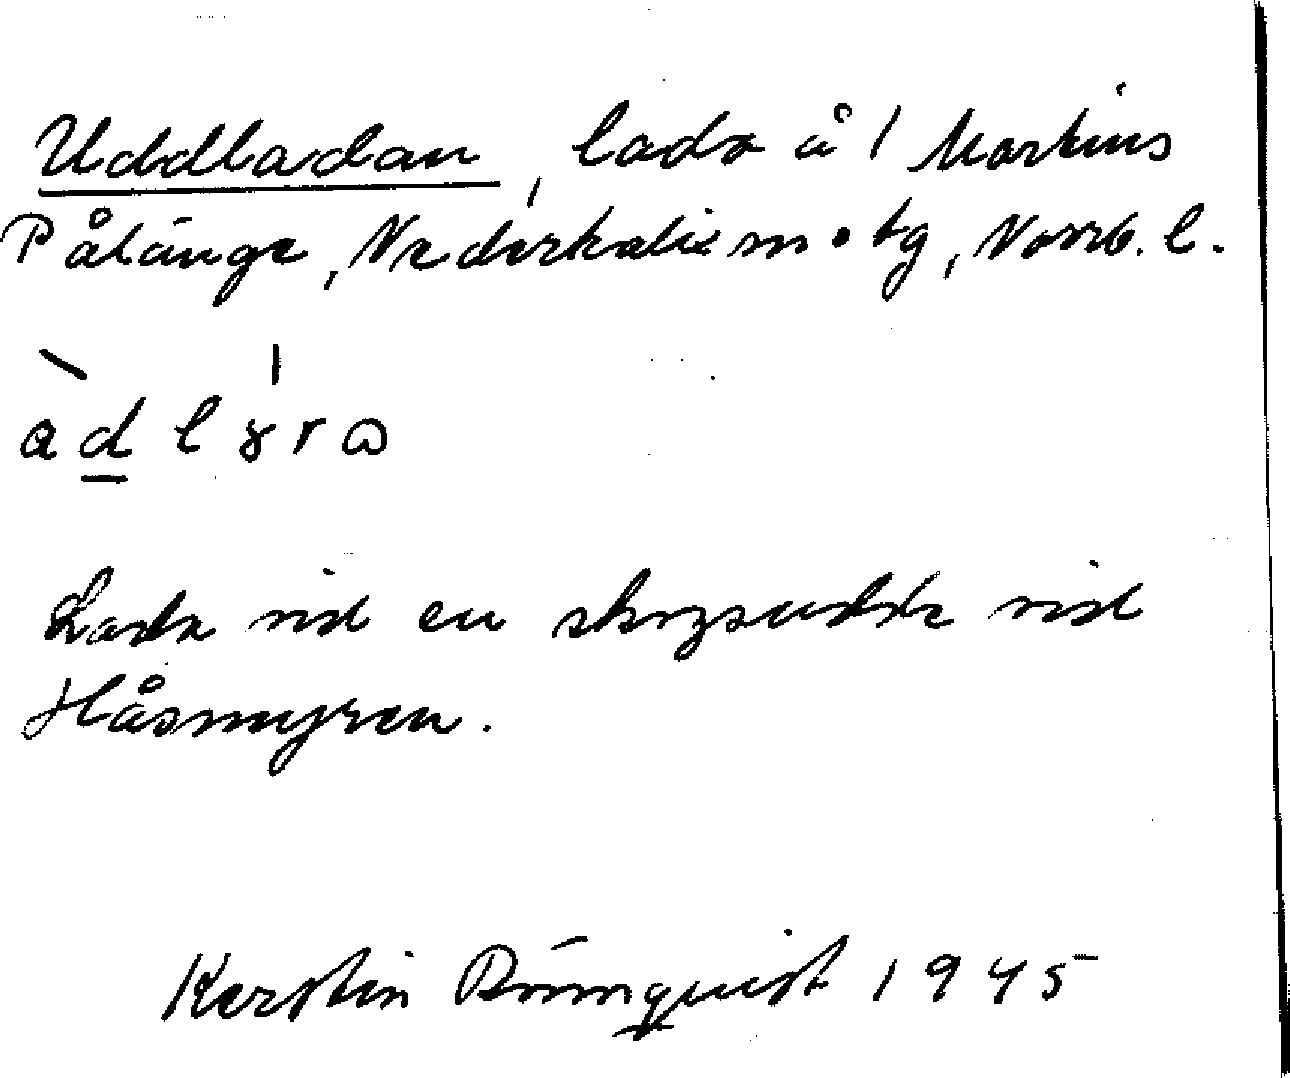 Uddladan, lada å 1 Martins
Pålänge, Nederkalix m. tg, Norrb. l.
adlɤra
Lada vid en skogsudde vid
Håsmyren.
Kerstin 1945